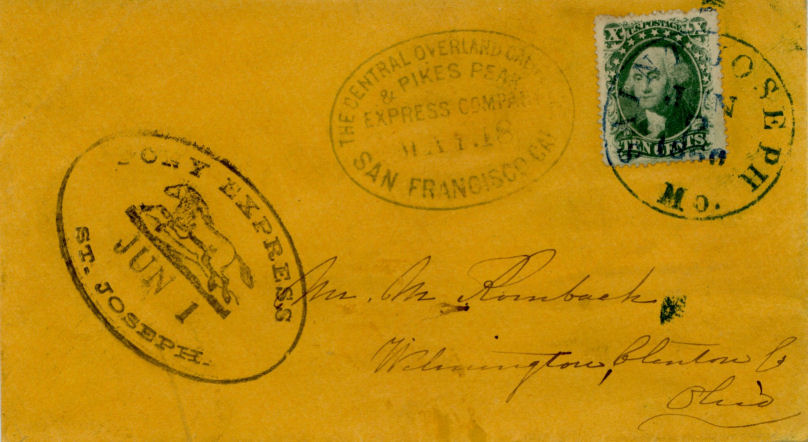 THE CENTRAL OVERLAND
& PIKES PEAK
EXPRESS COMPANY
MAY. 18
SAN FRANCISCO CAL
X U.S. POSTAGE X
TEN CENTS
SAINT JOSEPH
JUN
1860
Mo.
PONY EXPRESS
JUN 1
ST. JOSEPH.
Mr. M Rombach
Wilmington, Clinton Co
Ohio